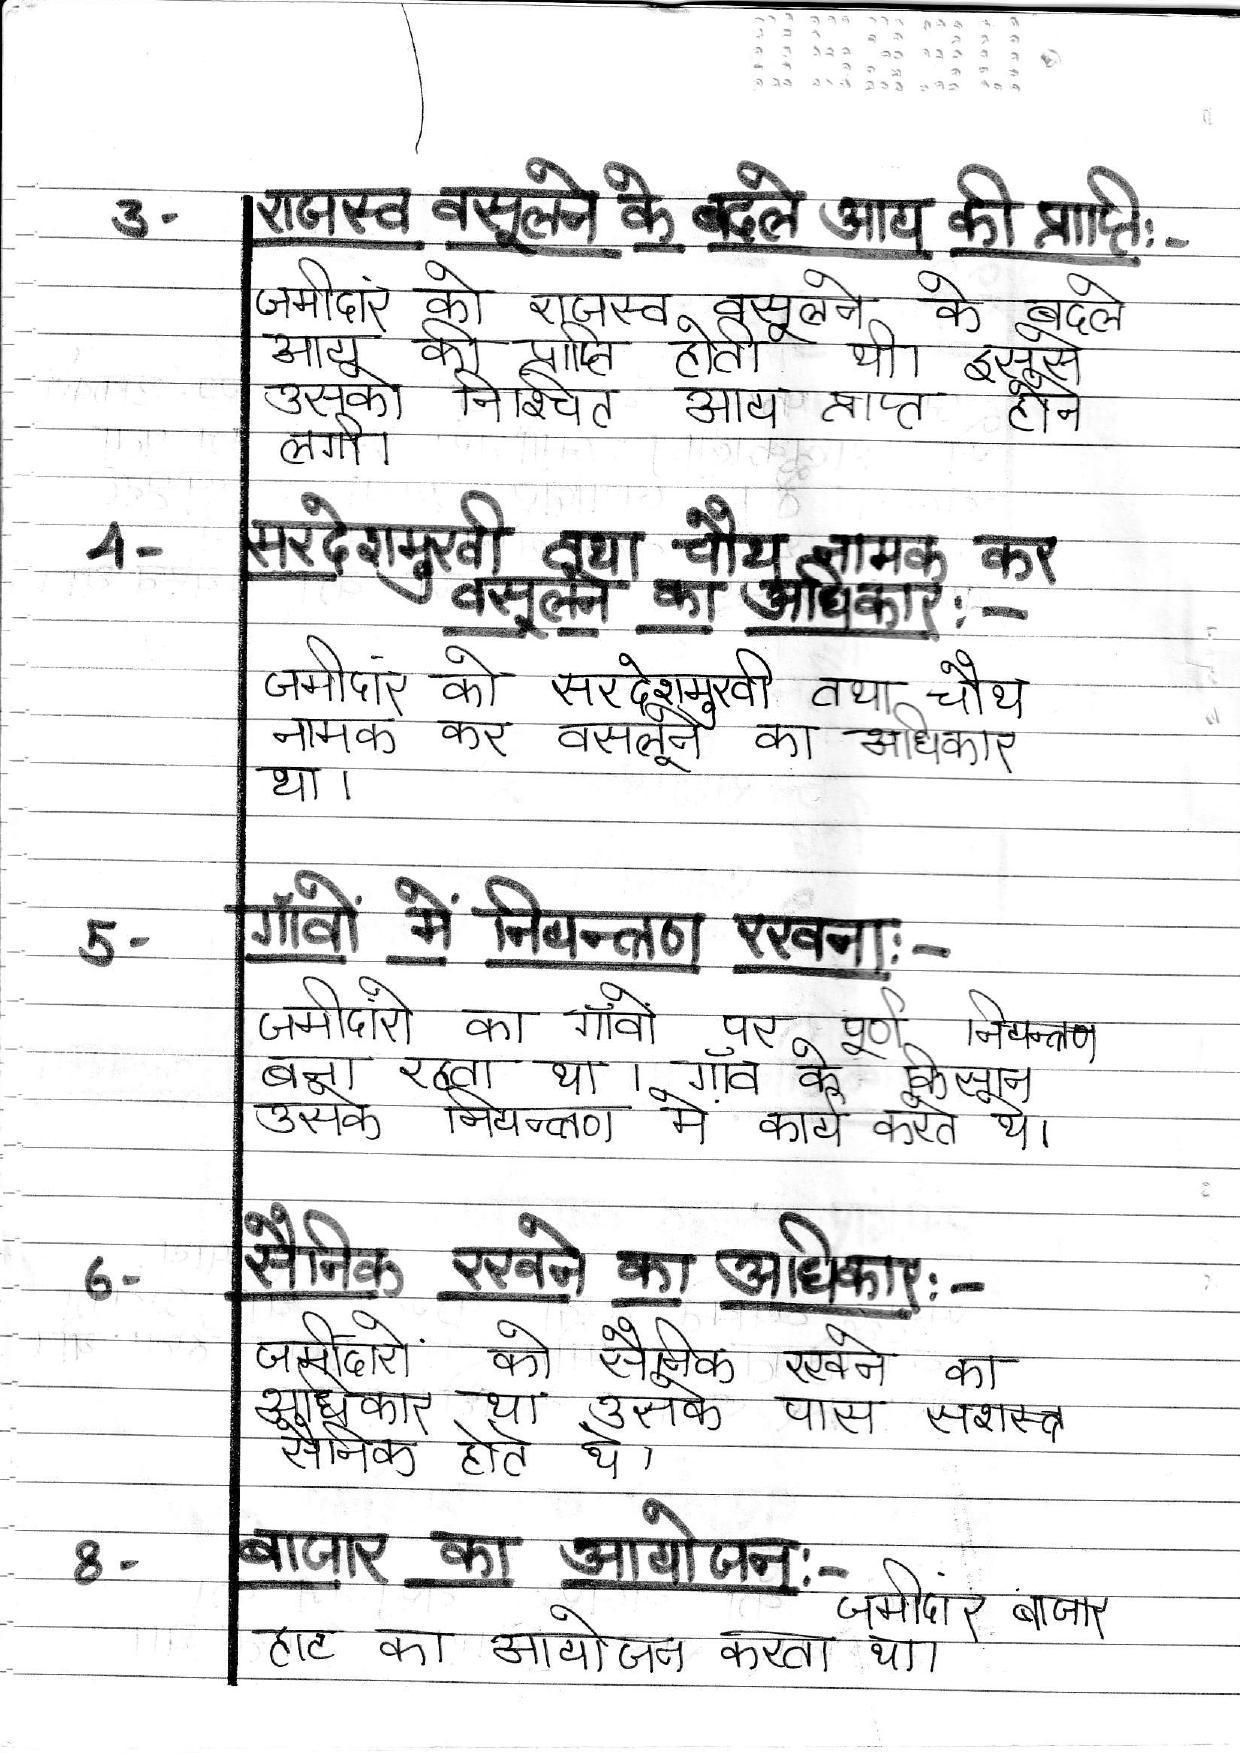 3- राजस्व वसूलने के बदले आय की प्राप्ति:-
जमीदांर को राजस्व वसूलने के बदले
आय की प्राप्ति होती थी। इससे
उसको निश्चित आय प्राप्त होने
लगी।
4- सरदेशमुखी तथा चौथ नामक कर
वसूलने का अधिकार:-
जमीदांर को सरदेशमुखी तथा चौथ
नामक कर वसलूने का अधिकार
था।
5- गाँवों में नियन्त्रण रखना:-
जमीदांरो का गाँवों पर पूर्ण नियन्त्रण
बना रहता था। गाँव के किसान
उसके नियन्त्रण में कार्य करते थे।
6- सैनिक रखने का अधिकार:-
जमीदारों को सैनिक रखने का
अधिकार था उसके पास सशस्त्र
सैनिक होते थे।
8- बाजार का आयोजन:-
जमीदांर बाजार
हाट का आयोजन करता था।